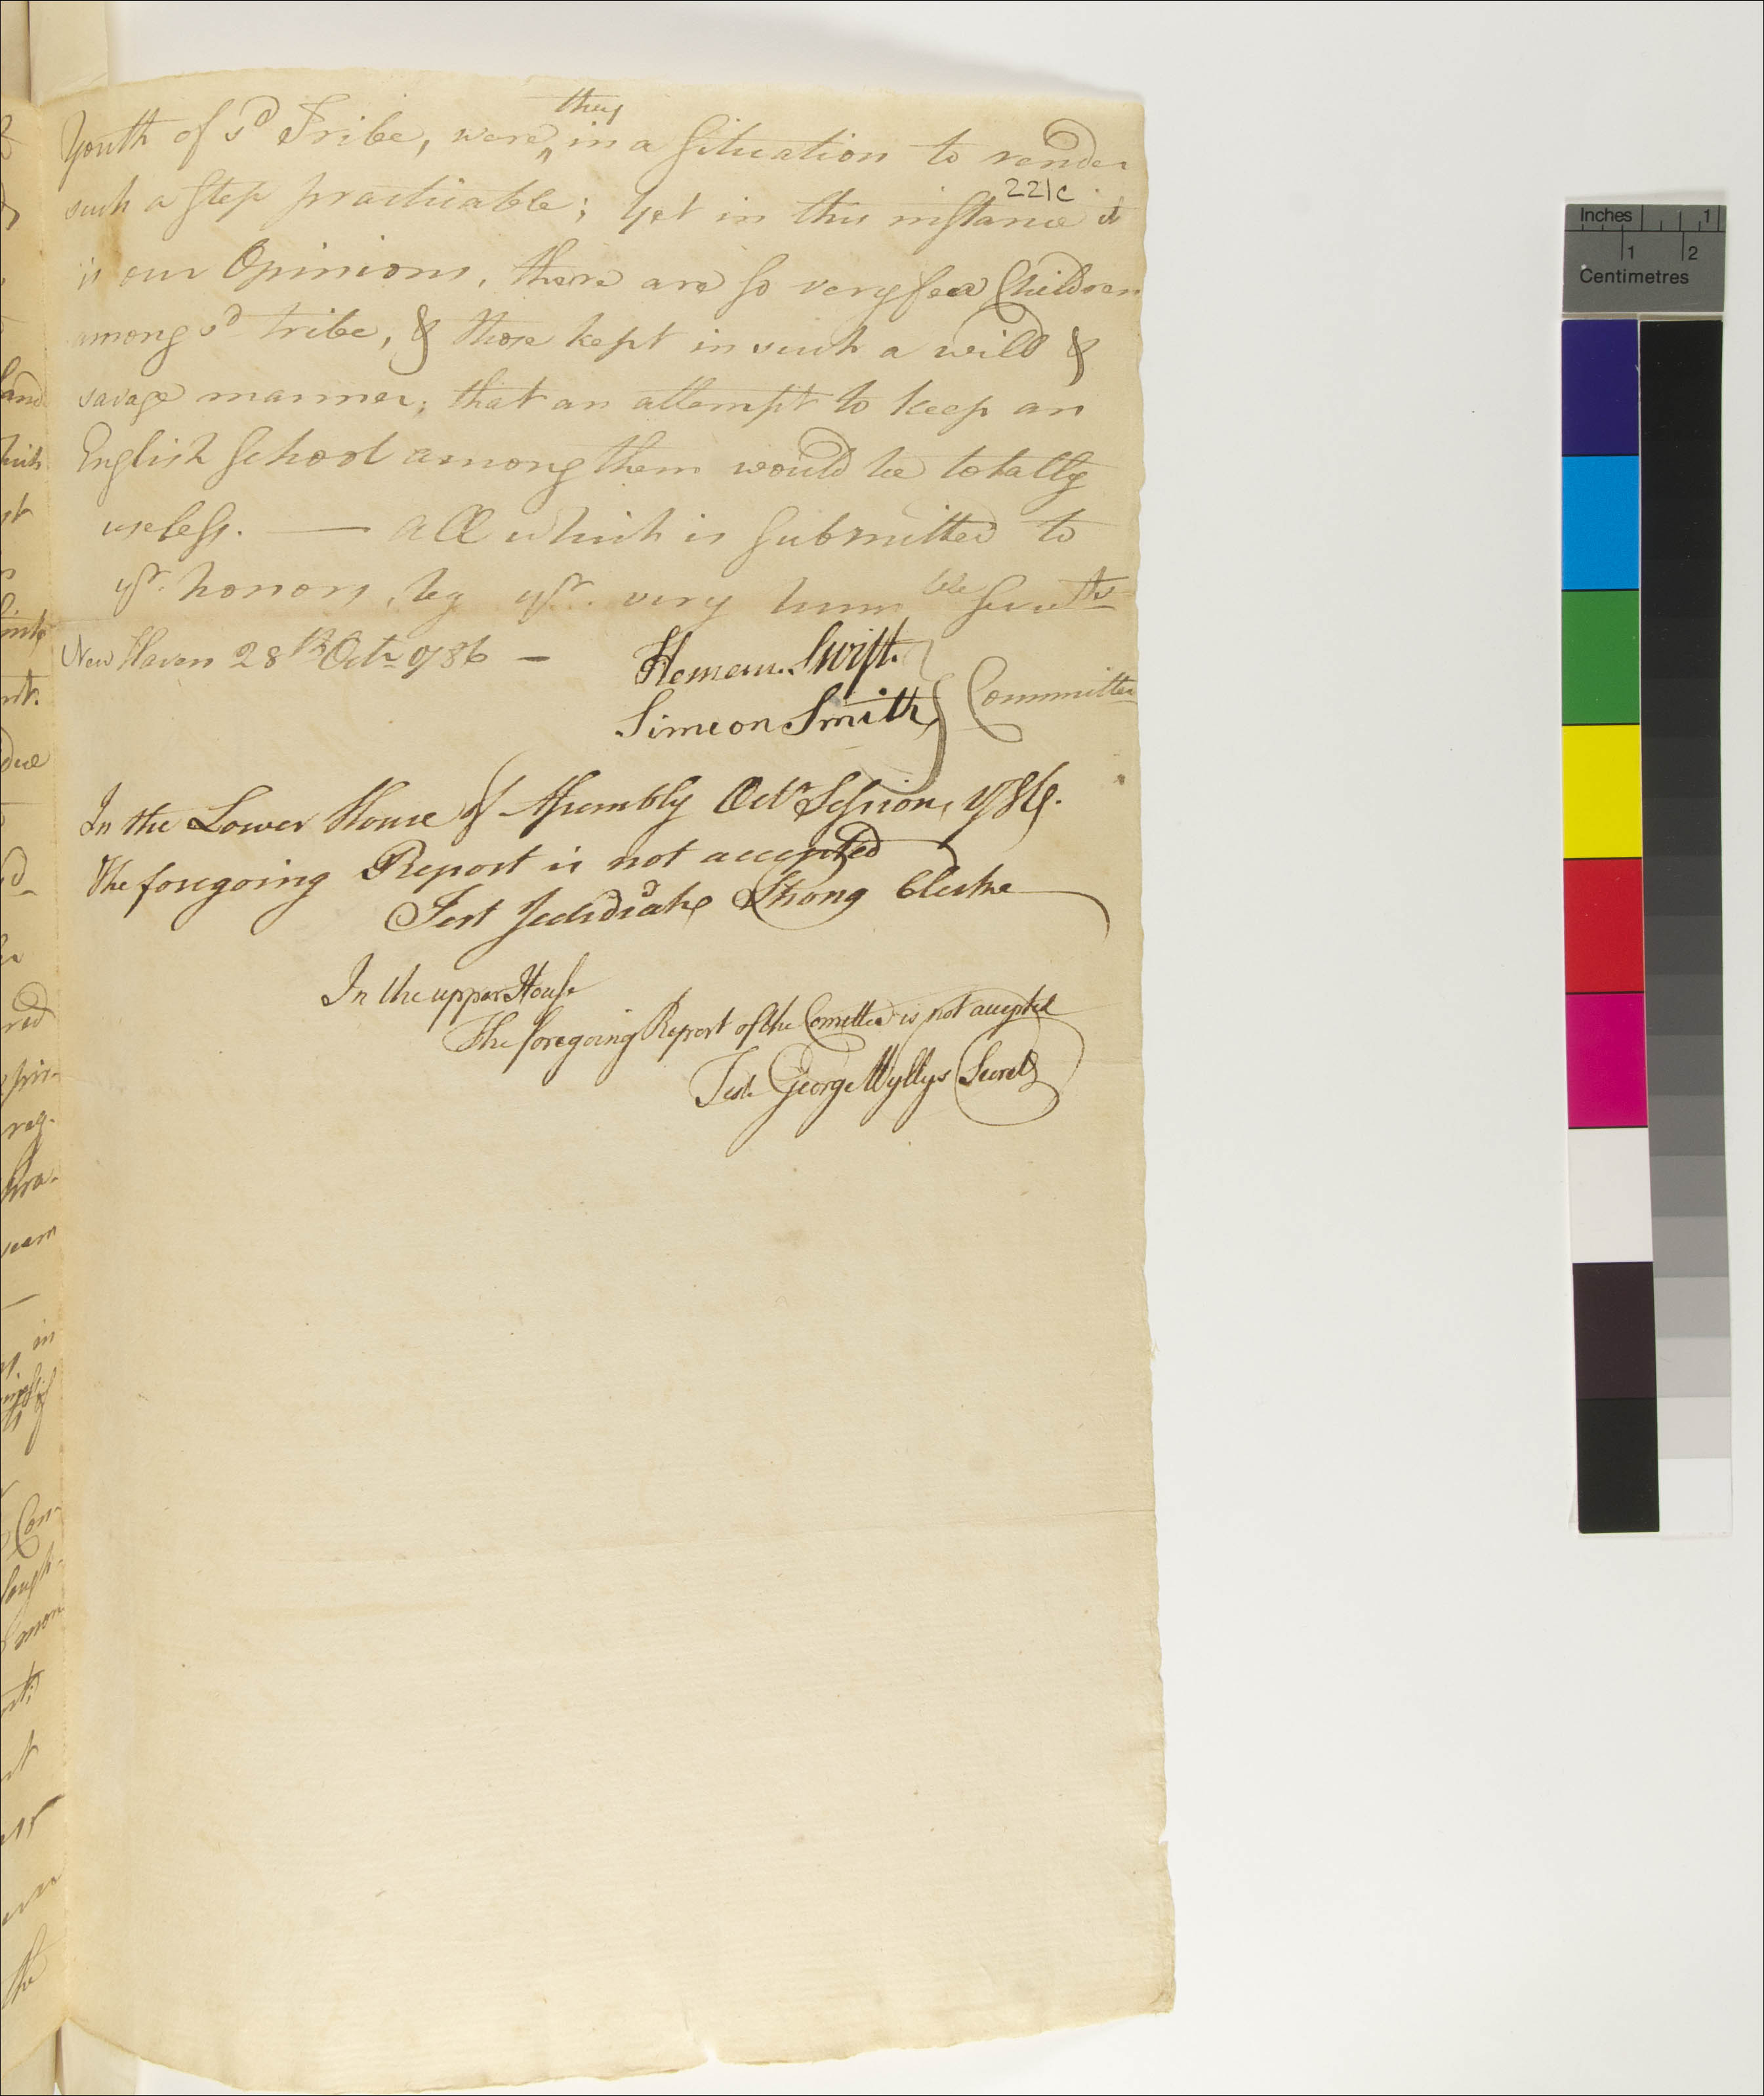 Youth of sd Tribe, were they in a Situation to render
221c
such a Step practicable; Yet in this instance it
is our Opinions, there are so very few Children
among sd tribe, & those kept in such a wild &
savage manner; that an attempt to keep an
English School among them would be totally
useless. — All which is Submitted to
yr. honors, by yr. very humble Servts
New Haven 28th Octr 1786 —
Heman Swift
Simeon Smith } Committee
In the Lower House of Assembly Octr Session, 1786.
The foregoing Report is not accepted
Test Jedidiah Strong Clerke
In the upper House
The foregoing Report of the Comittee is not accepted
Test George Wyllys Secrety
and
red
in
Con-
the
Inches 1
1 2
Centimetres